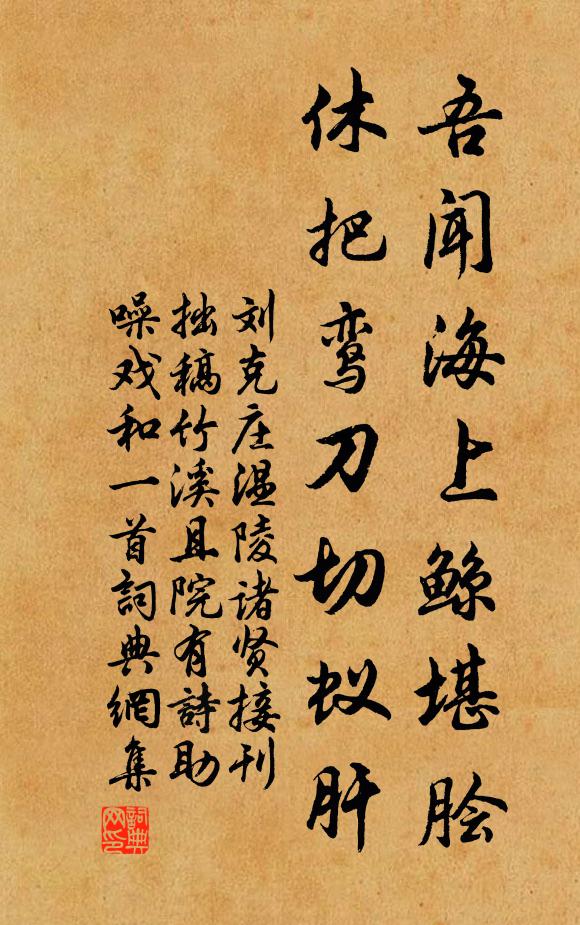 吾闻海上鲸堪脍
休把鸾刀切蚁肝
刘克庄温陵诸贤接刊
拙稿竹溪且院有詩助
噪戏和一首詞典網集
詞典网印